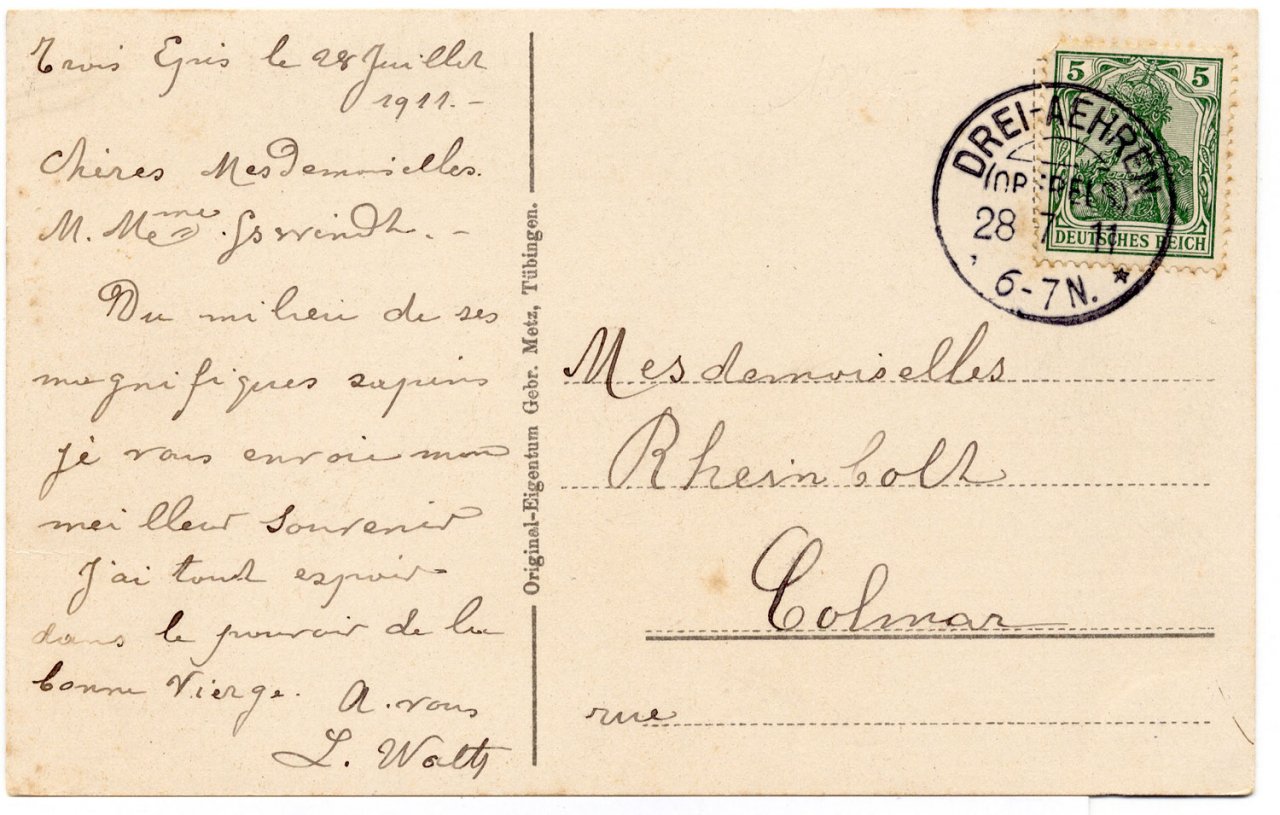 Trois Epis le 28 Juillet
1911. -
Chères Mesdemoiselles.
M. Mme
Du milieu de ses
magnifiques sapins
je vous envoie mon
meilleur souvenir
J'ai tout espoir
dans le pouvoir de la
bonne Vierge.
A. vous
L. Waltz
Original-Eigentum Gebr. Metz, Tübingen.
5 5
DEUTSCHES REICH
DREI-AEHREN
28 7 11
6-7 N. *
Mesdemoiselles
Rheinbolt
Colmar
rue